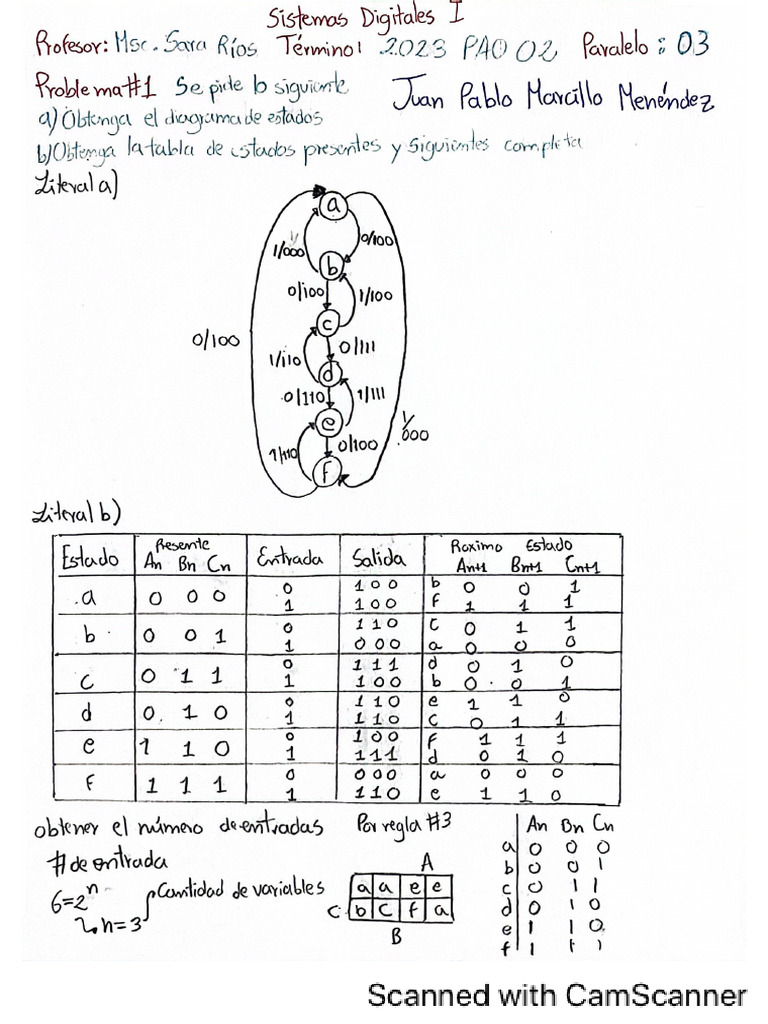 Sistemas Digitales I
Profesor: Msc. Sara Ríos Término 2023 PAO 02 Paralelo: 03
Problema#1 Se pide lo siguiente Juan Pablo Marcillo Menéndez
a) Obtenga el diagrama de estados
b) Obtenga la tabla de estados presentes y siguientes completa
Literal a)
a
1/000 0/100
b
0/100 1/100
c
0/100
1/110 0/111
d
0/110 1/111
e
1/000
1/110 0/100
f
Literal b)
Estado Presente An Bn Cn Entrada Salida Roximo Estado An+1 Bn+1 Cn+1
a 0 0 0 0 100 b 0 0 1
1 100 f 1 1 1
b 0 0 1 0 110 c 0 1 1
1 000 a 0 0 0
c 0 1 1 0 111 d 0 1 0
1 100 b 0 0 1
d 0 1 0 0 110 e 1 1 0
1 110 c 0 1 1
e 1 1 0 0 100 f 1 1 1
1 111 d 0 1 0
f 1 1 1 0 000 a 0 0 0
1 110 e 1 1 0
obtener el número de entradas Por regla #3
# de entrada
6=2^n Cantidad de variables
n=3
A
a a e e
C b c f a
B
An Bn Cn
a 0 0 0
b 0 0 1
c 0 1 1
d 0 1 0
e 1 1 0
f 1 1 1
Scanned with CamScanner